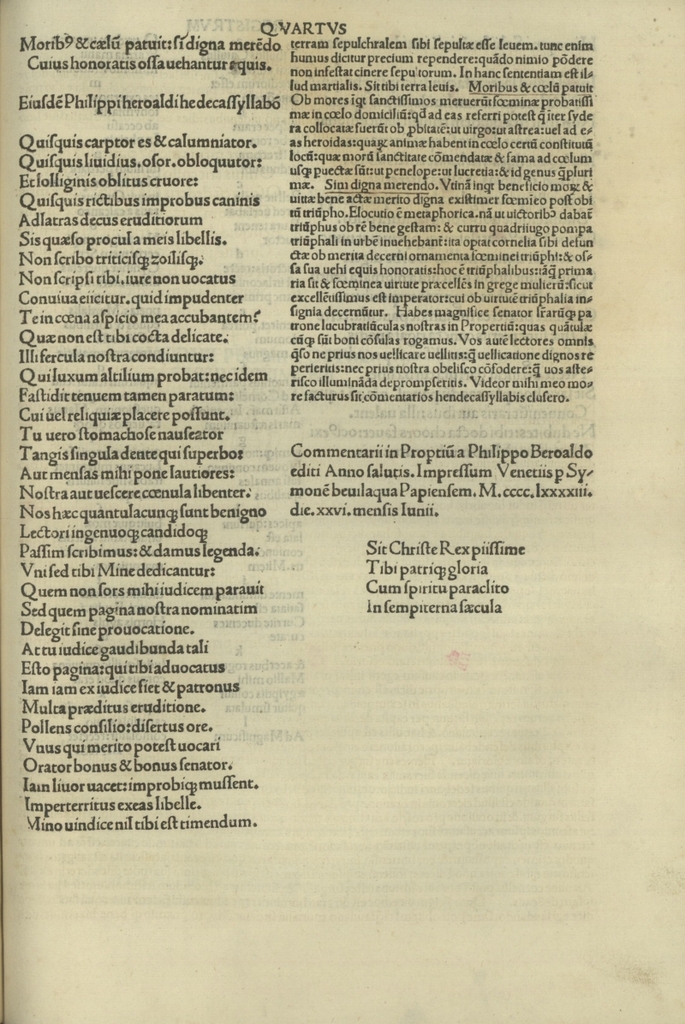 QVARTVS
Moribꝰ & cœlū patuit: si digna merēdo
Cuius honoratis ossa uehantur equis.
Eiusdē Philippi heroaldi hēdecassyllabō
Quisquis carptor es & calumniator.
Quisquis liuidius, osor, obloquutor:
Et lolliginis oblitus cruore:
Quisquis rictibus improbus caninis
Adlatras decus eruditorium
Sis quæso procul a meis libellis.
Non scribo triticisqꝫ zoilisqꝫ.
Non scripsi tibi, iure non uocatus
Conuiua eiicitur. quid impudenter
Te in cœna aspicio mea accubantem?
Quæ non est tibi cocta delicate.
Illi fercula nostra condiuntur:
Qui luxum altilium probat: nec idem
Fastidit tenuem tamen paratum:
Cui uel reliquiæ placere possunt.
Tu uero stomachose nauseator
Tangis singula dente qui superbo:
Aut mensas mihi pone lautiores:
Nostra aut uescere cœnula libenter.
Nos hæc quantulacunqꝫ sunt benigno
Lectori ingenuoqꝫ candidoqꝫ
Passim scribimus: & damus legenda.
Vni sed tibi Mine dedicantur:
Quem non sors mihi iudicem parauit
Sed quem pagina nostra nominatim
Delegit sine prouocatione.
At tu iudice gaudibunda tali
Esto pagina: qui tibi aduocatus
Iam iam ex iudice fiet & patronus
Multa præditus eruditione.
Pollens consilio: disertus ore.
Vnus qui merito potest uocari
Orator bonus & bonus senator.
Iam liuor uacet: improbiqꝫ mussent.
Imperterritus exeas libelle.
Mino uindice nil tibi est timendum.
terram sepulchralem sibi sepultæ esse leuem. tunc enim
humus dicitur precium rependere: quādo nimio pōdere
non infestat cinere sepultorum. In hanc sententiam est il-
lud martialis. Sit tibi terra leuis. Moribus & cœlū patuit
Ob mores īqt sanctissimos meruerūt fœminæ probatissi
mæ in cœlo domiciliū: qd ad eas referri potest q īter syde
ra collocatæ fuerūt ob ꝓbitatē: ut uirgo: ut astrea: uel ad e-
as heroidas: quaꝝ animæ habent in cœlo certū constitutū
locū: quæ morū sanctitate cōmendatæ & fama ad cœlum
usqꝫ puectæ sūt: ut penelope: ut lucretia: & id genus q̄pluri
mæ. Sim digna merendo. Vtinā inqt beneficio moꝝ &
uittæ bene actæ merito digna existimer fœmineo post obi
tū triūpho. Elocutio ē metaphorica. nā ut uictoribꝰ dabat̄
triūphus ob rē bene gestam: & curru quadriiugo pompa
triūphali in urbē inuehebant̄: ita optat cornelia sibi defun
ctæ ob merita decerni ornamenta fœminei triūphi: & os-
sa sua uehi equis honoratis: hoc ē triūphalibus: tāq̄ prima
ria sit & fœminea uirtute præcellēs in grege mulierū: sicut
excellētissimus est imperator: cui ob uirtutē triūphalia in-
signia decernūtur. Habes magnifice senator
trone lucubratiūculas nostras in Propertiū: quas
cūqꝫ sūt boni cōsulas rogamus. Vos autē lectores omnis
q̄so ne prius nos uellicare uellitis: q̄ uellicatione dignos re
perieritis: nec prius nostra obelisco cōfodere: q̄ uos aste-
risco illumināda deprompseritis. Videor mihi meo mo-
re facturus si cōmentarios hendecassyllabis clusero.
Commentarii in Proptiū a Philippo Beroaldo
editi Anno salutis. Impressum Venetiis p Sy-
monē beuilaqua Papiensem. M.cccc.lxxxxiii.
die. xxvi. mensis Iunii.
Sit Christe Rex piissime
Tibi patriqꝫ gloria
Cum spiritu paraclito
In sempiterna sæcula